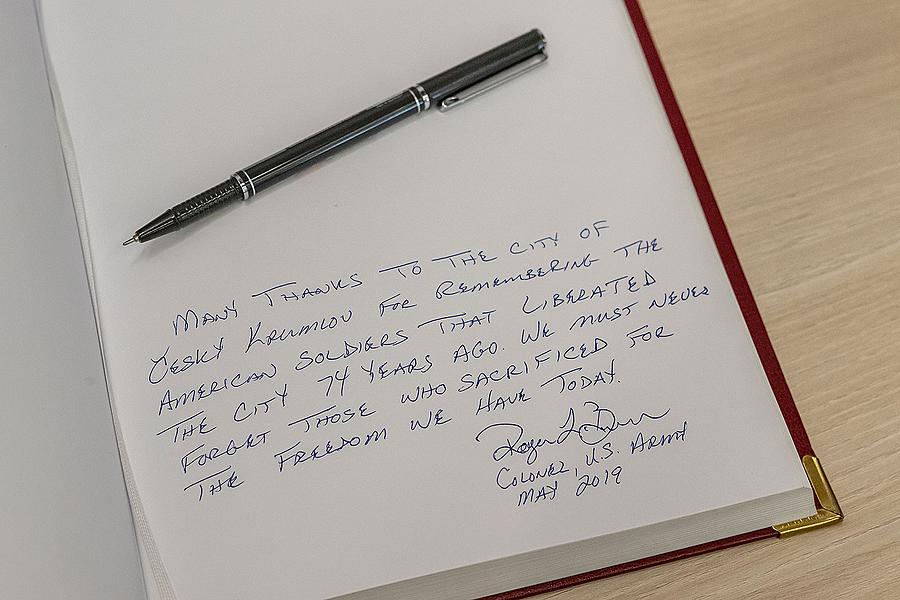 MANY THANKS TO THE CITY OF
ČESKY KRUMLOV FOR REMEMBERING THE
AMERICAN SOLDIERS THAT LIBERATED
THE CITY 74 YEARS AGO. WE MUST NEVER
FORGET THOSE WHO SACRIFICED FOR
THE FREEDOM WE HAVE TODAY.
Roger L
COLONEL, U.S. ARMY
MAY 2019